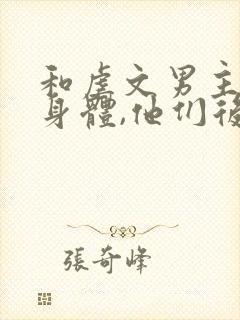 和虐文男主
身體,他们後
張奇峰